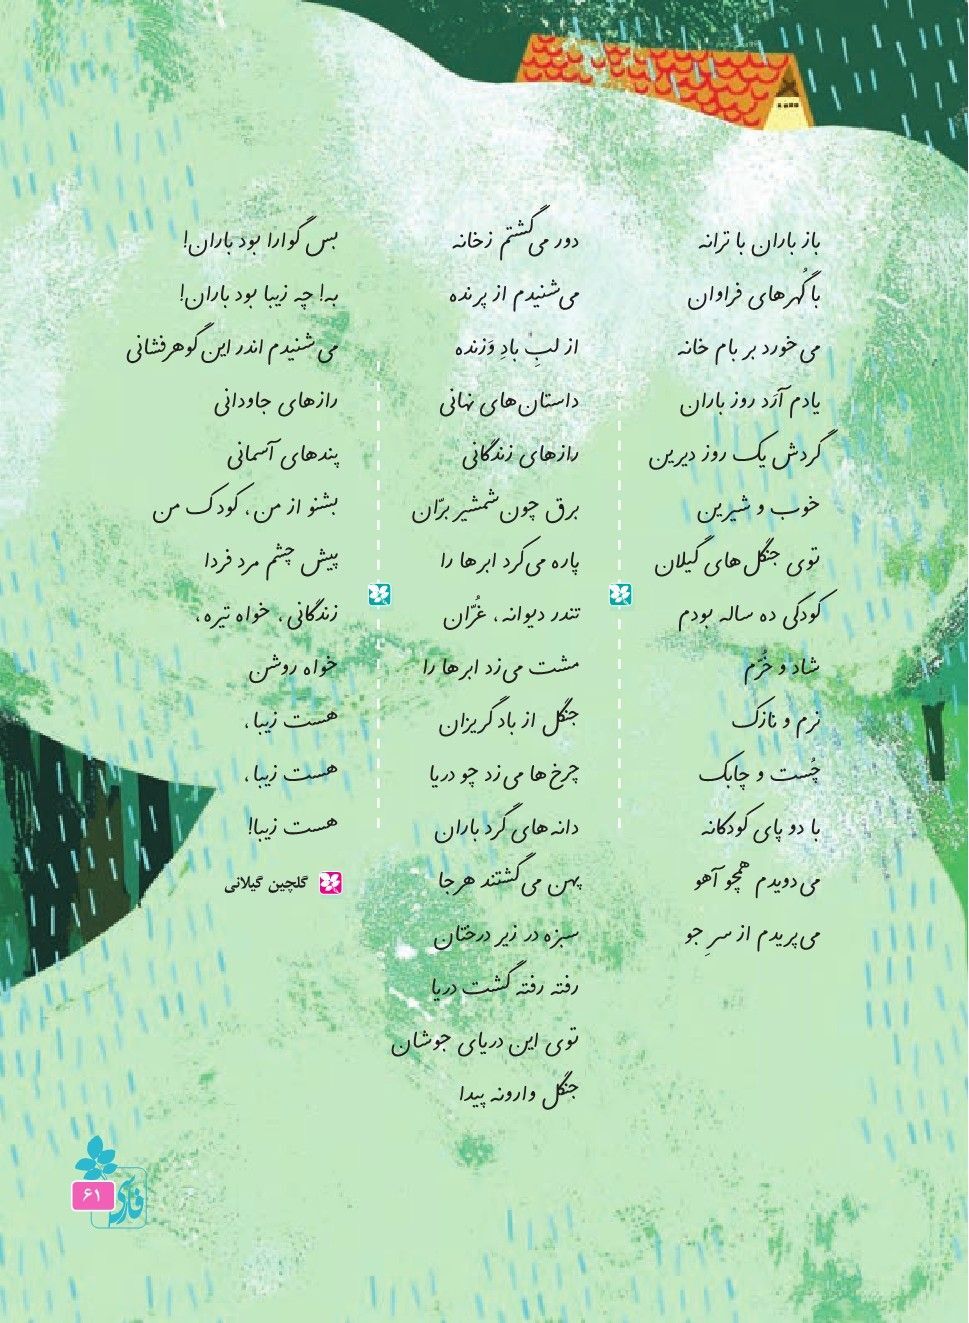 باز باران با ترانه
با گُهرهای فراوان
می‌خورد بر بام خانه
یادم آرَد روز باران
گردش یک روز دیرین
خوب و شیرین
توی جنگل‌های گیلان
کودکی ده ساله بودم
شاد و خُرّم
نرم و نازک
چُست و چابک
با دو پای کودکانه
می‌دویدم همچو آهو
می‌پریدم از سرِ جو
دور می‌گشتم ز خانه
می‌شنیدم از پرنده
از لبِ بادِ وَزنده
داستان‌های نهانی
رازهای زندگانی
برق چون شمشیر برّان
پاره می‌کرد ابرها را
تندر دیوانه، غُرّان
مشت می‌زد ابرها را
جنگل از باد گریزان
چرخ‌ها می‌زد چو دریا
دانه‌های گرد باران
پهن می‌گشتند هرجا
سبزه در زیر درختان
رفته رفته گشت دریا
توی این دریای جوشان
جنگل وارونه پیدا
بس گوارا بود باران!
به! چه زیبا بود باران!
می‌شنیدم اندر این گوهرفشانی
رازهای جاودانی
پندهای آسمانی
بشنو از من، کودک من
پیش چشم مرد فردا
زندگانی، خواه تیره،
خواه روشن
هست زیبا،
هست زیبا،
هست زیبا!
گلچین گیلانی
فارسی
۶۱